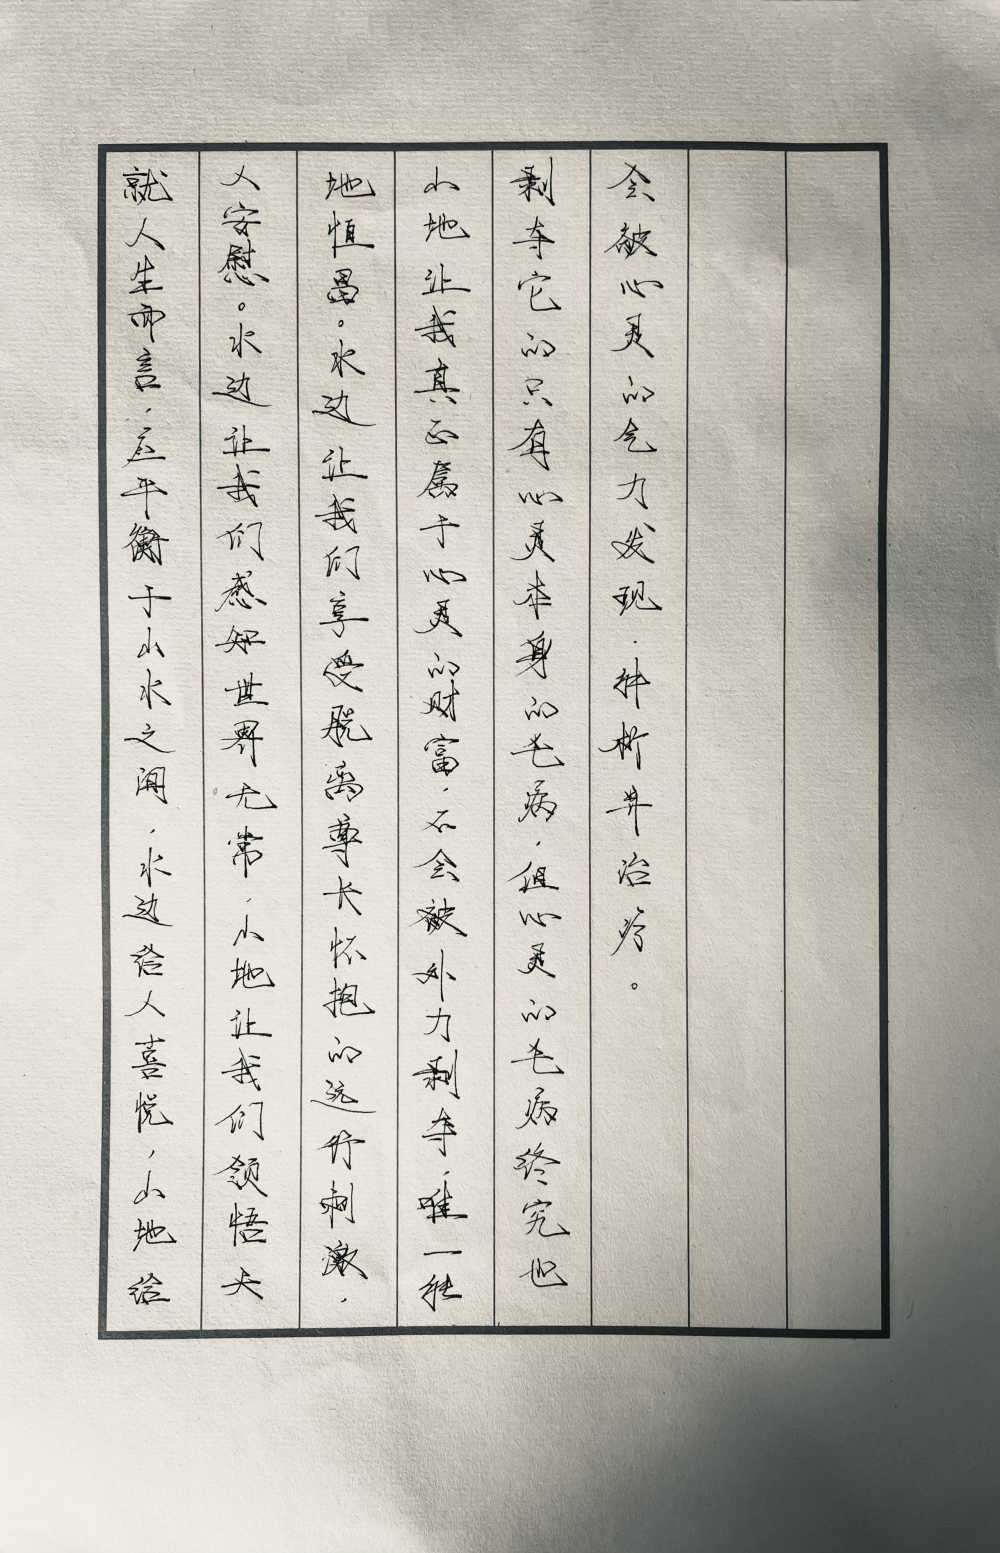 就人生而言，应平衡于山水之间，水边给人喜悦，山地给
人安慰。水边让我们感知世界无常，山地让我们领悟天
地恒昌。水边让我们享受脱离尊长怀抱的远行刺激，
山地让我真正属于心灵的财富，不会被外力剥夺，唯一能
剥夺它的只有心灵本身的毛病，但心灵的毛病终究也
会被心灵的气力发现，解析并治疗。